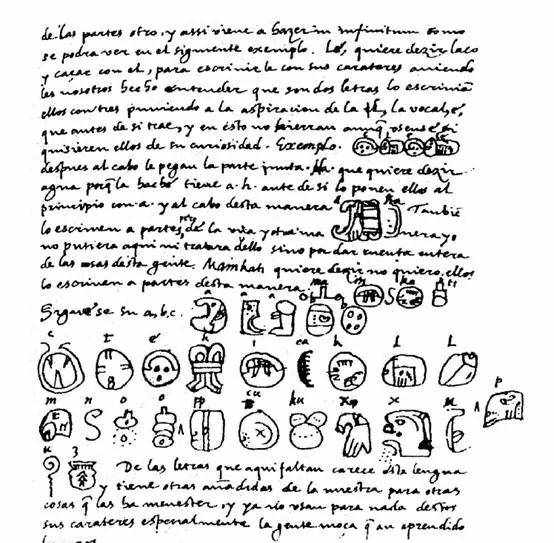 de las partes otro, y assi viene a hazer in infinitum como
se podra ver en el siguiente exemplo. Lé, quiere dezir laço
y caçar con el, para escriuirle con sus carateres auiendo
les nosotros hecho entender que son dos letras lo escriuiã
ellos con tres puniendo a la aspiracion de la la vocal, é,
que antes de si trae, y en esto no hierran aunq̃ osense, si
quisieren ellos de su curiosidad. Exemplo.
despues al cabo le pegan la parte junta. Ha que quiere dezir
agua porq̃ la haché tiene a. h. ante de si lo ponen ellos al
principio con a. y al cabo desta manera Tambiẽ
lo escriuen a partes, de la vna y otra ma nera, yo
no pusiera aqui ni tratara dello sino por dar cuenta entera
de las cosas desta gente. Mainkati quiere dezir no quiero, ellos
lo escriuen a partes desta manera. ma i n ka ti
Siguese su a, b, c. a a a b b
c t é h i ca k l l
m n o o pp cu ku x x u p
u z De las letras que aqui faltan carece esta lengua
y tiene otras añadidas de la nuestra para otras
cosas q̃ las ha menester, y ya no vsan para nada destos
sus carateres especialmente la gente moça q̃ an aprendido